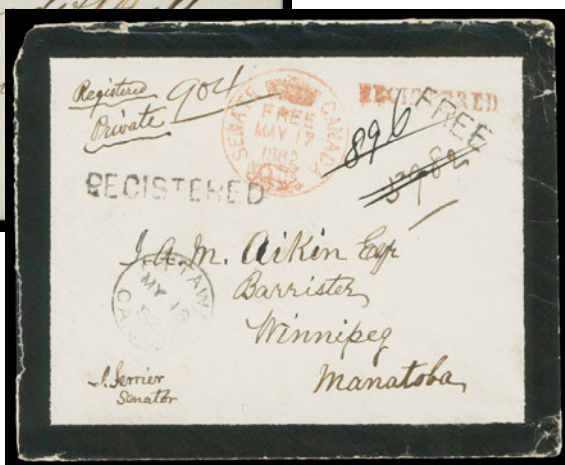 Registered 904
Private
SENATE CANADA
FREE
MAY 17
1882
REGISTERED
FREE
896
REGISTERED
J. A. M. Aikin Esqr
Barrister
Winnipeg
Manatoba
OTTAWA
MY 18
82
CA
J. Ferrier
Senator